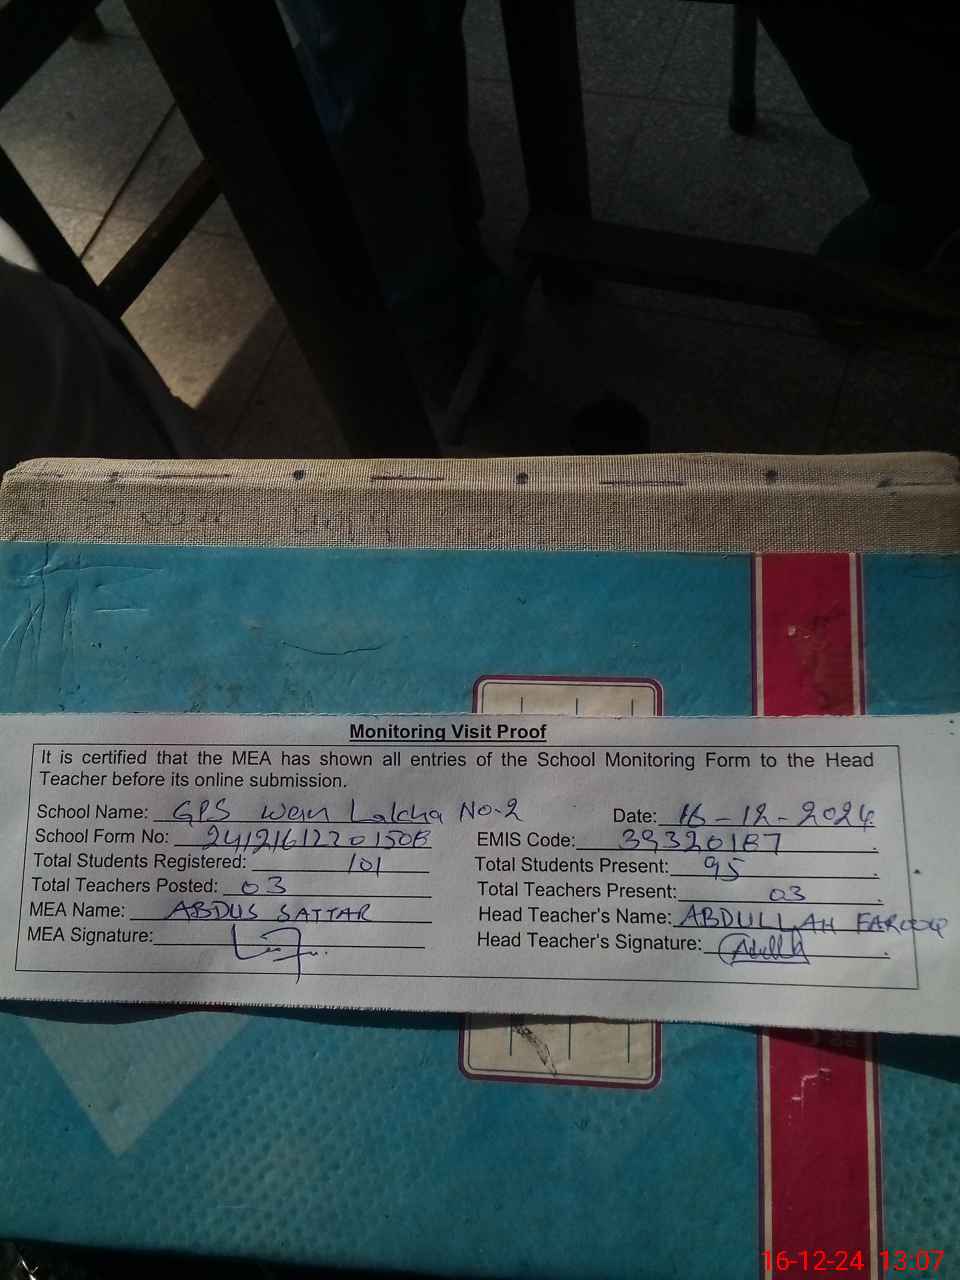 Monitoring Visit Proof
It is certified that the MEA has shown all entries of the School Monitoring Form to the Head
Teacher before its online submission.
School Name: GPS Wan Lakha No-2 Date: 16-12-2024
School Form No: 24121612201508 EMIS Code: 39320187
Total Students Registered: 101 Total Students Present: 95
Total Teachers Posted: 03 Total Teachers Present: 03
MEA Name: ABDUS SATTAR Head Teacher's Name: ABDULLAH FAROOQ
MEA Signature: Head Teacher's Signature:
16-12-24 13:07